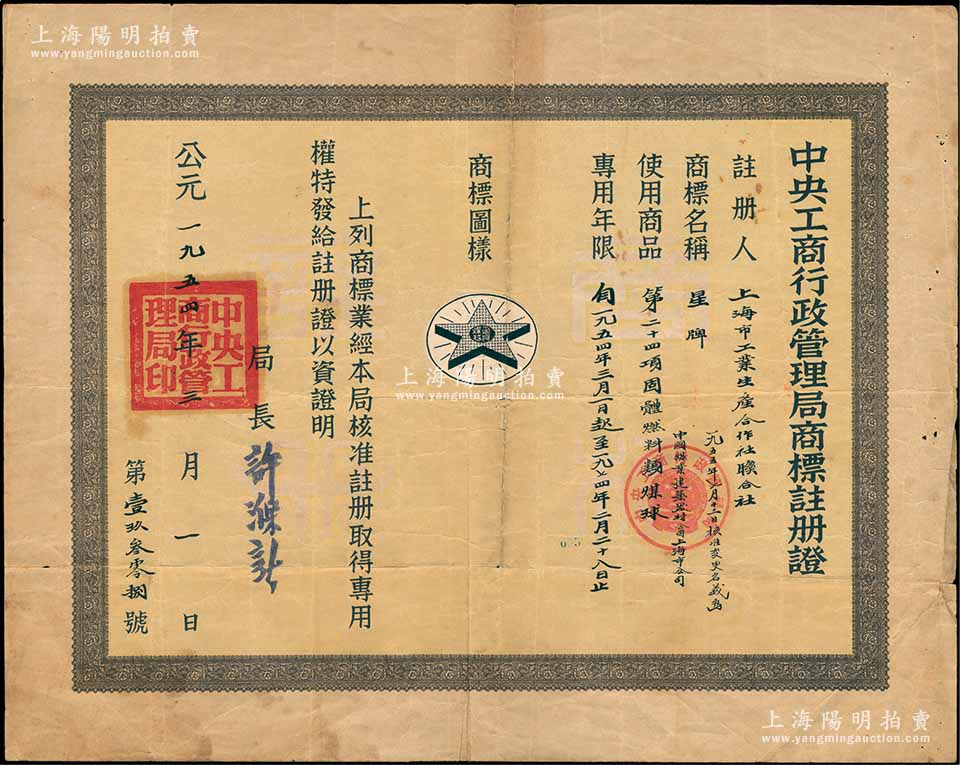 上海陽明拍賣
www.yangmingauction.com
中央工商行政管理局商標註册證
註册人 上海市工業生產合作社聯合社
一九五五年 月十二日核准变更名義為
中國煤業建築器材公司上海市公司
商標名稱 星牌
使用商品 第二十四項固體燃料類煤球
專用年限 自一九五四年三月一日起至一九七四年二月二十八日止
商標圖樣
上列商標業經本局核准註册取得專用
權特發給註册證以資證明
局長 許滌新
中央工商行政管理局印
公元一九五四年三月一日
第壹玖叁零捌號
上海陽明拍賣
www.yangmingauction.com
上海陽明拍賣
www.yangmingauction.com